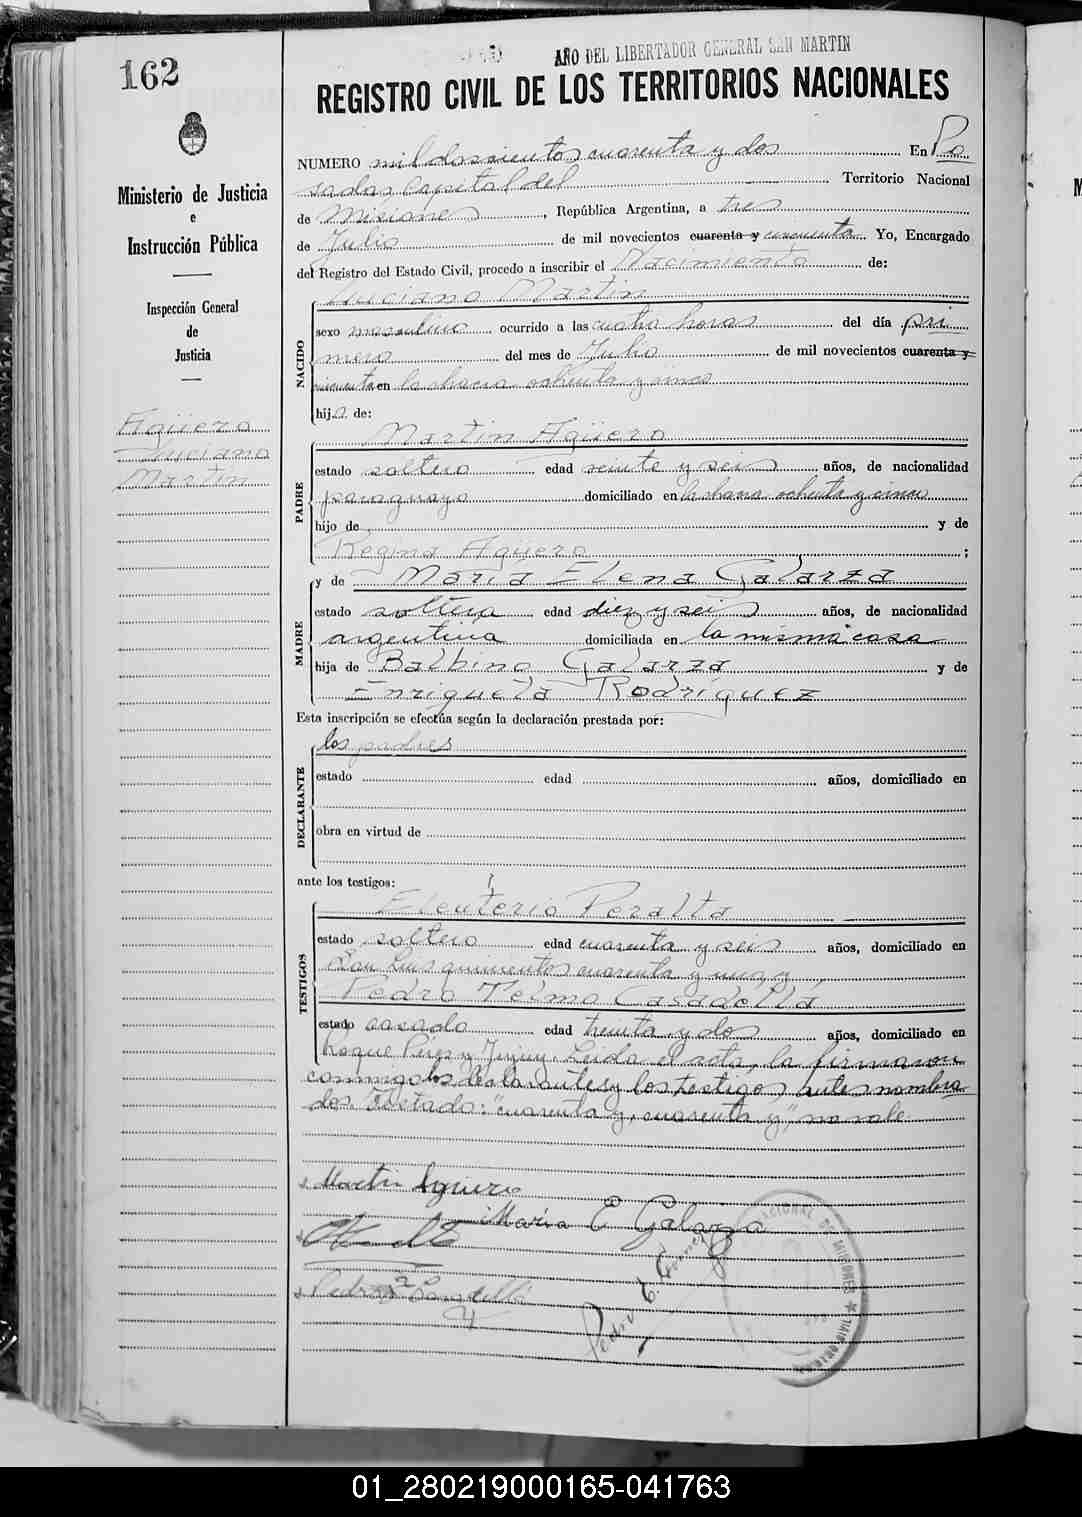 162
AÑO DEL LIBERTADOR GENERAL SAN MARTIN
REGISTRO CIVIL DE LOS TERRITORIOS NACIONALES
Ministerio de Justicia
e
Instrucción Pública
Inspección General
de
Justicia
Agüero
Luciano
Martin
NUMERO mil doscientos cuarenta y dos En Po
sadas, Capital del Territorio Nacional
de Misiones, República Argentina, a tres
de Julio de mil novecientos cuarenta y cincuenta Yo, Encargado
del Registro del Estado Civil, procedo a inscribir el Nacimiento de:
Luciano Martin
NACIDO
sexo masculino ocurrido a las cuatro horas del día pri
mero del mes de Julio de mil novecientos cuarenta y
cincuenta en la chacra ochenta y cinco
hijo de:
Martin Agüero
PADRE
estado soltero edad veinte y seis años, de nacionalidad
paraguayo domiciliado en la chacra ochenta y cinco
hijo de y de
Regina Agüero ;
y de Maria Elena Galarza
MADRE
estado soltera edad diez y seis años, de nacionalidad
argentina domiciliada en la misma casa
hija de Balbino Galarza y de
Enriqueta Rodríguez
Esta inscripción se efectúa según la declaración prestada por:
los padres
DECLARANTE
estado edad años, domiciliado en
obra en virtud de
ante los testigos:
Eleuterio Peralta
TESTIGOS
estado soltero edad cuarenta y seis años, domiciliado en
San Luis quinientos cuarenta y uno, y
Pedro Telmo Casadellá
estado casado edad treinta y dos años, domiciliado en
Roque Pérez y Jujuy. Leida el acta, la firmaron
conmigo los declarantes y los testigos antes nombra
dos. Testado: "cuarenta y, cuarenta y", no vale
Martin Aguero
Maria E Galarza
Pedro
01_280219000165-041763